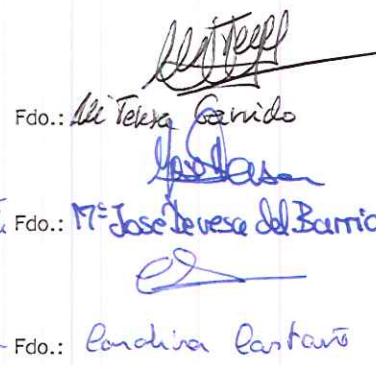 Fdo.: Mª Teresa Garrido
Fdo.: Mª José Devesa del Barrio
Fdo.: Candiva Castaño